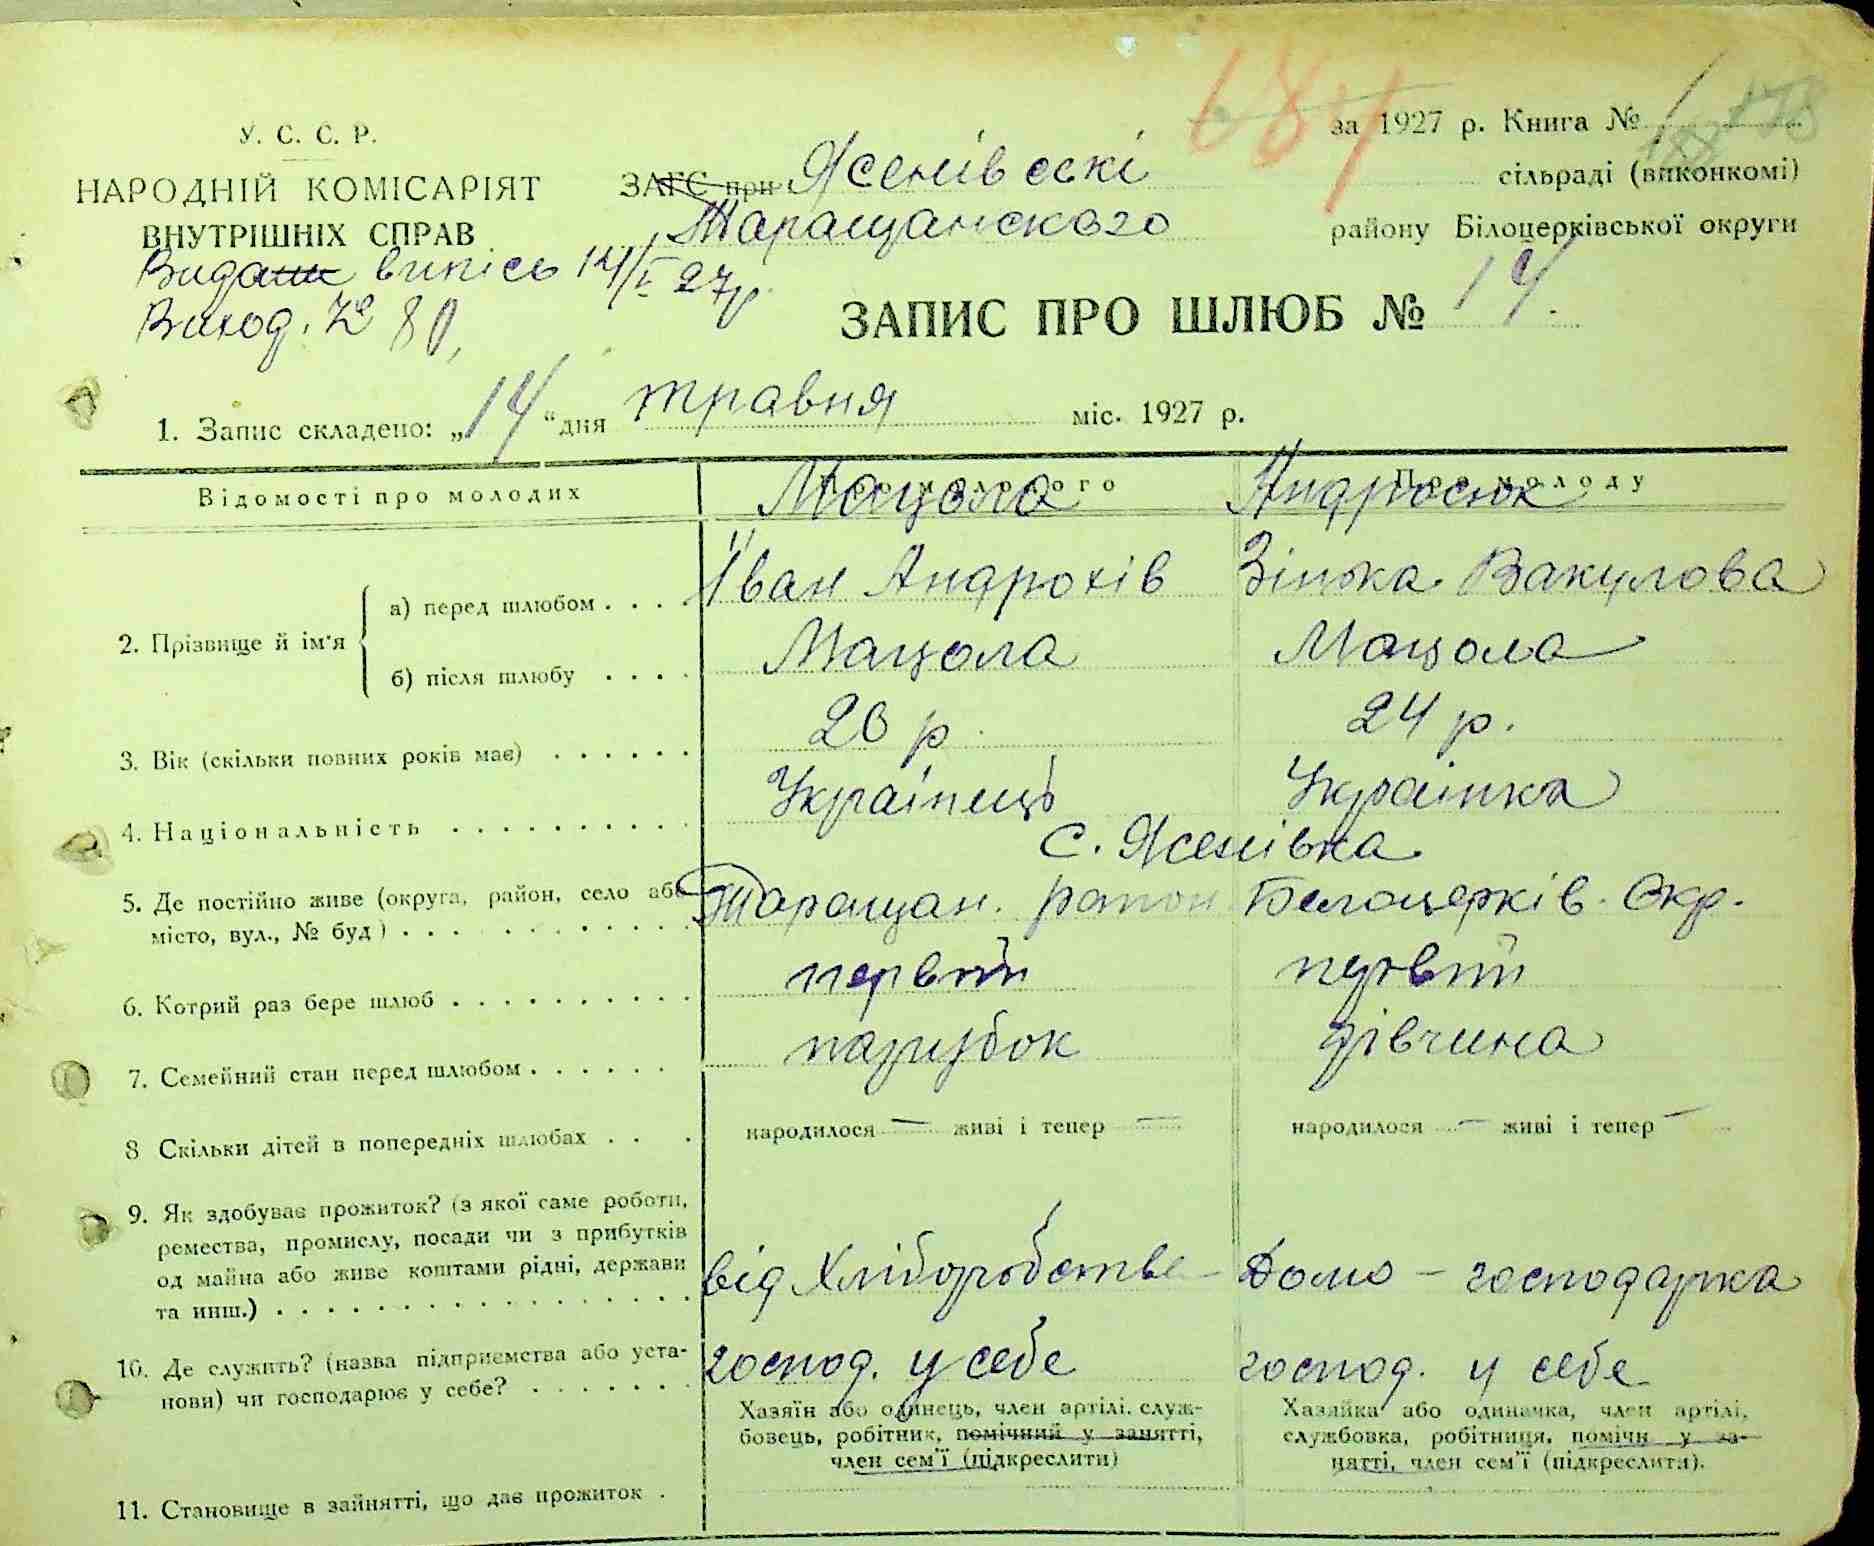 за 1927 р. Книга № 1
У. С. С. Р.
НАРОДНІЙ КОМІСАРІЯТ
ВНУТРІШНІХ СПРАВ
ЗАГС при Ясенівскі сільраді (виконкомі)
Таращанского району Білоцерківської округи
випісь 14/V 27р.
Виход. № 80,
ЗАПИС ПРО ШЛЮБ № 14.
1. Запис складено: „14“ дня травня міс. 1927 р.
Відомості про молодих Про молодого Про молоду
Мацола Андросюк
2. Прізвище й ім'я а) перед шлюбом . . . . Іван Андрохів Зінька Вакулова
б) після шлюбу . . . . Мацола Мацола
3. Вік (скільки повних років має) . . . . . . р. 24 р.
4. Національність . . . . . . . . . . Українець Українка
с. Ясенівка
5. Де постійно живе (округа, район, село або
місто, вул., № буд) . . . . . . . . . . Таращан. район Белоцерків. Окр.
6. Котрий раз бере шлюб . . . . . . . . . . первий первий
7. Семейний стан перед шлюбом . . . . . . парубок дівчина
8 Скільки дітей в попередніх шлюбах . . . . народилося — живі і тепер — народилося — живі і тепер —
9. Як здобуває прожиток? (з якої саме роботи,
ремества, промислу, посади чи з прибутків
од майна або живе коштами рідні, держави
та инш.) . . . . . . . . . . . . . . . . від Хліборобства Домо – господарка
10. Де служить? (назва підприємства або уста-
нови) чи господарює у себе? . . . . . . . господ. у себе господ. у себе
Хазяїн або одинець, член артілі, служ-
бовець, робітник, помічний у занятті,
член сем'ї (підкреслити)
Хазяйка або одиначка, член артілі,
службовка, робітниця, помічн у за-
нятті, член сем'ї (підкреслити).
11. Становище в зайнятті, що дає прожиток .